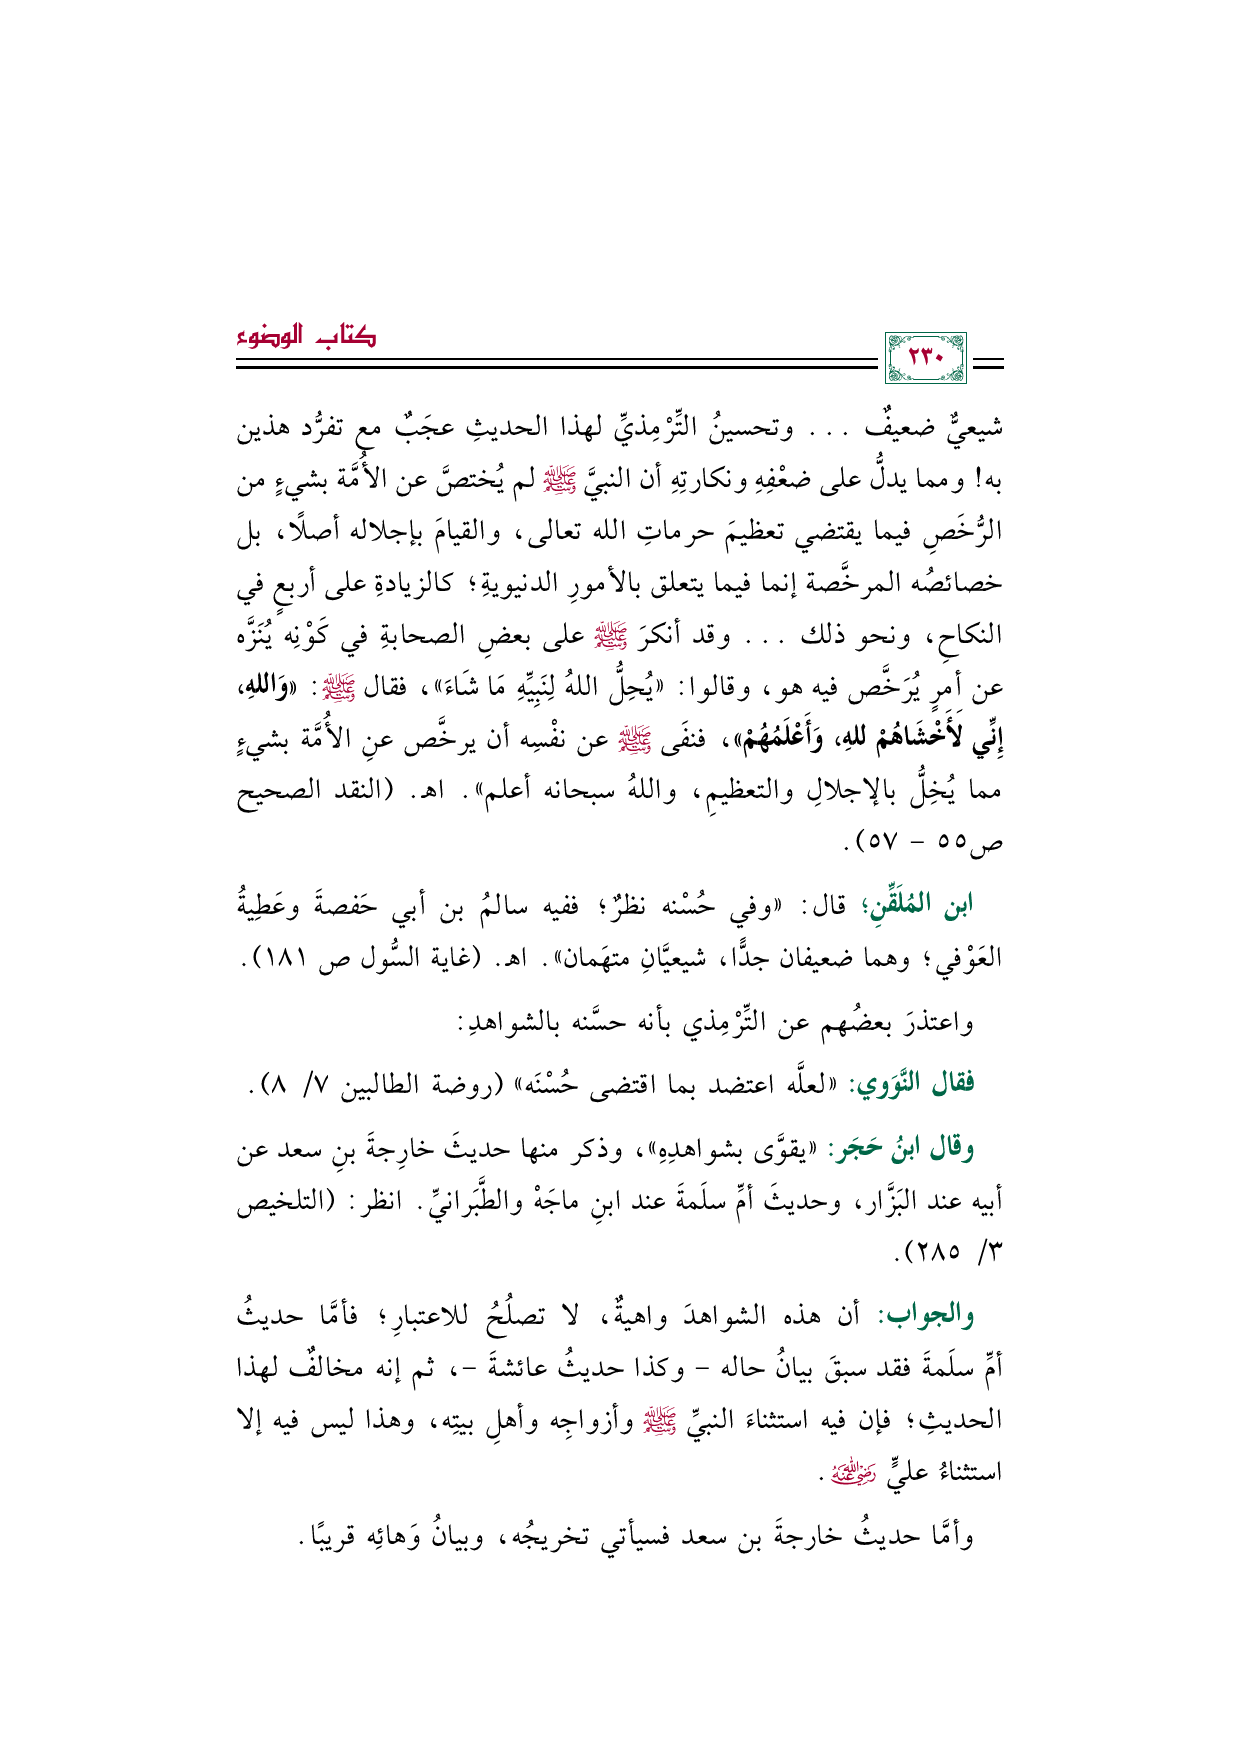 كتاب الوضوء
٢٣٠
شيعيٌّ ضعيفٌ ... وتحسينُ التِّرْمِذيِّ لهذا الحديثِ عجَبٌ مع تفرُّد هذين
به! ومما يدلُّ على ضعْفِهِ ونكارتِهِ أن النبيَّ ﷺ لم يُختصَّ عن الأُمَّة بشيءٍ من
الرُّخَصِ فيما يقتضي تعظيمَ حرماتِ الله تعالى، والقيامَ بإجلاله أصلًا، بل
خصائصُه المرخَّصة إنما فيما يتعلق بالأمورِ الدنيويةِ؛ كالزيادةِ على أربعٍ في
النكاحِ، ونحو ذلك ... وقد أنكرَ ﷺ على بعضِ الصحابةِ في كَوْنِه يُنَزَّه
عن أمرٍ يُرَخَّص فيه هو، وقالوا: «يُحِلُّ اللهُ لِنَبِيِّهِ مَا شَاءَ»، فقال ﷺ: «وَاللهِ،
إِنِّي لَأَخْشَاهُمْ للهِ، وَأَعْلَمُهُمْ»، فنفَى ﷺ عن نفْسِه أن يرخَّص عنِ الأُمَّة بشيءٍ
مما يُخِلُّ بالإجلالِ والتعظيمِ، واللهُ سبحانه أعلم». اهـ. (النقد الصحيح
ص٥٥ - ٥٧).
ابن المُلَقِّنِ؛ قال: «وفي حُسْنه نظرٌ؛ ففيه سالمُ بن أبي حَفصةَ وعَطِيةُ
العَوْفي؛ وهما ضعيفان جدًّا، شيعيَّانِ متهَمان». اهـ. (غاية السُّول ص ١٨١).
واعتذرَ بعضُهم عن التِّرْمِذي بأنه حسَّنه بالشواهدِ:
فقال النَّوَوي: «لعلَّه اعتضد بما اقتضى حُسْنَه» (روضة الطالبين ٧/ ٨).
وقال ابنُ حَجَر: «يقوَّى بشواهدِهِ»، وذكر منها حديثَ خارِجةَ بنِ سعد عن
أبيه عند البَزَّار، وحديثَ أمِّ سلَمةَ عند ابنِ ماجَهْ والطَّبَرانيِّ. انظر: (التلخيص
٣/ ٢٨٥).
والجواب: أن هذه الشواهدَ واهيةٌ، لا تصلُحُ للاعتبارِ؛ فأمَّا حديثُ
أمِّ سلَمةَ فقد سبقَ بيانُ حاله - وكذا حديثُ عائشةَ -، ثم إنه مخالفٌ لهذا
الحديثِ؛ فإن فيه استثناءَ النبيِّ ﷺ وأزواجِه وأهلِ بيتِه، وهذا ليس فيه إلا
استثناءُ عليٍّ رضي الله عنه.
وأمَّا حديثُ خارجةَ بن سعد فسيأتي تخريجُه، وبيانُ وَهائِه قريبًا.